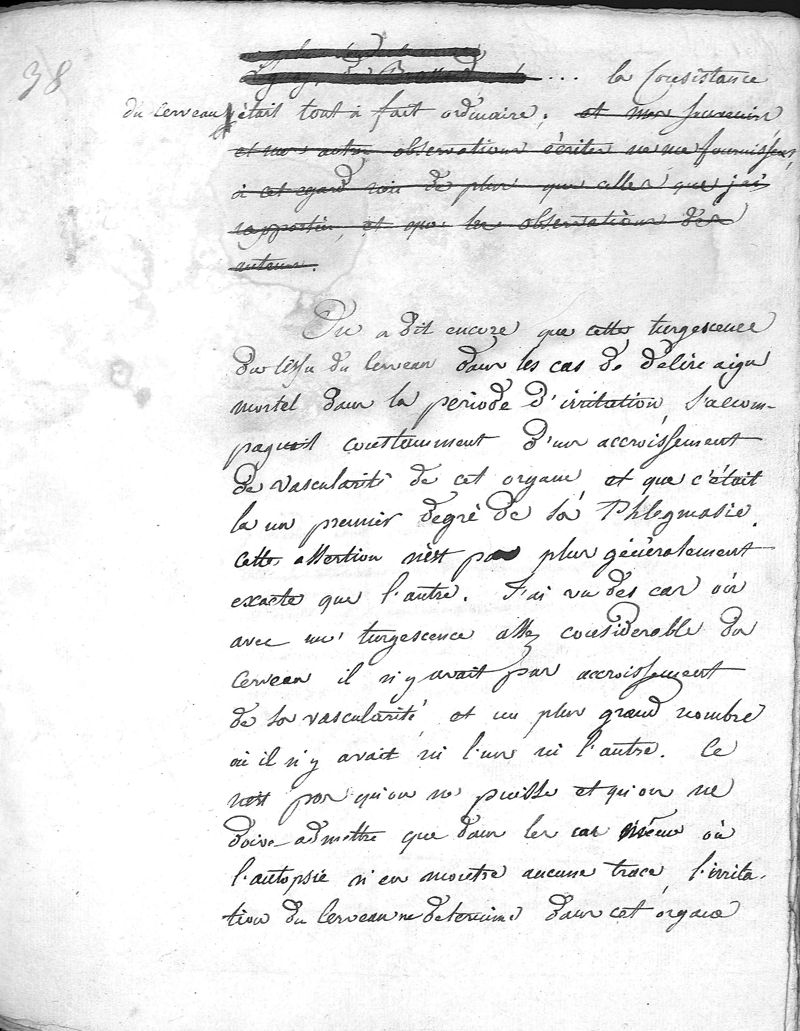 38
.... la Consistance
du cerveau était tout à fait ordinaire; et mes souvenirs
et mes autres observations écrites ne me fournissent
à cet egard rien de plus que celles que j'ai
rapportées, et que les observations des
auteurs.
On a dit encore que cette turgescence
du tissu du Cerveau dans les cas de délire aigu
mortel dans la periode d'irritation, s'accom-
pagnait constamment d'un accroissement
de vascularité de cet organe, et que c'était
la un premier degré de sa Phlegmasie.
cette assertion n'est pas plus généralement
exacte que l'autre. J'ai vu des cas où
avec une turgescence assez considerable du
Cerveau il n'y avait pas accroissement
de sa vascularité, et un plus grand nombre
où il n'y avait ni l'un ni l'autre. Ce
n'est pas qu'on ne puisse et qu'on ne
doive admettre que dans les cas même où
l'autopsie n'en montre aucune trace l'irrita-
tion du Cerveau ne determine dans cet organe